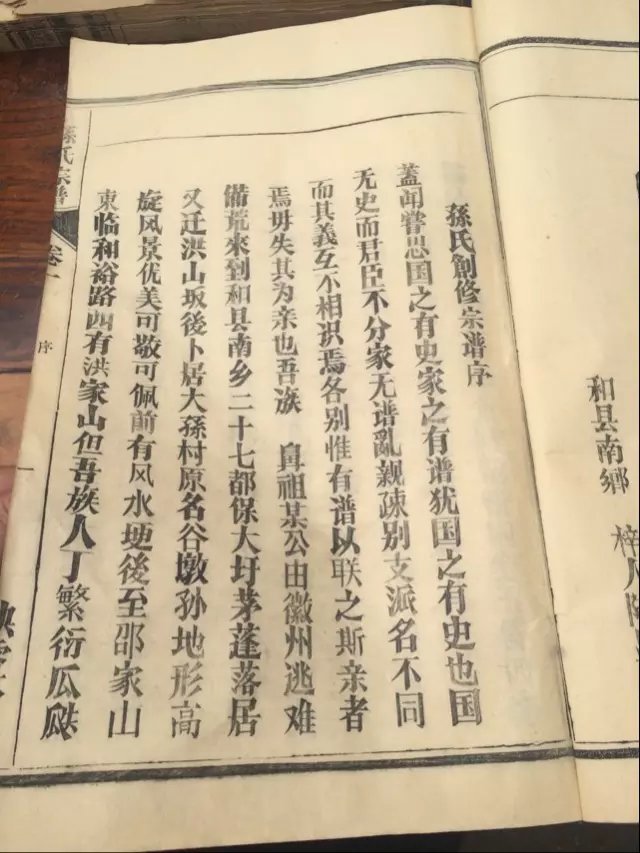 和县南鄉
梓人陳
孫氏創修宗谱序
蓋闻嘗思国之有史家之有谱犹国之有史也国
无史而君臣不分家无谱亂親疎别支派名不同
而其義互不相识焉各别惟有谱以联之斯亲者
焉毋失其为亲也吾族 鼻祖某公由徽州逃难
備荒來到和县南乡二十七都保大圩茅蓬落居
又迁洪山坂後卜居大孫村原名谷墩孙地形高
旋风景优美可敬可佩前有风水埂後至邵家山
東临和裕路西有洪家山但吾族人丁繁衍瓜瓞
孫氏宗譜
卷一
序
一